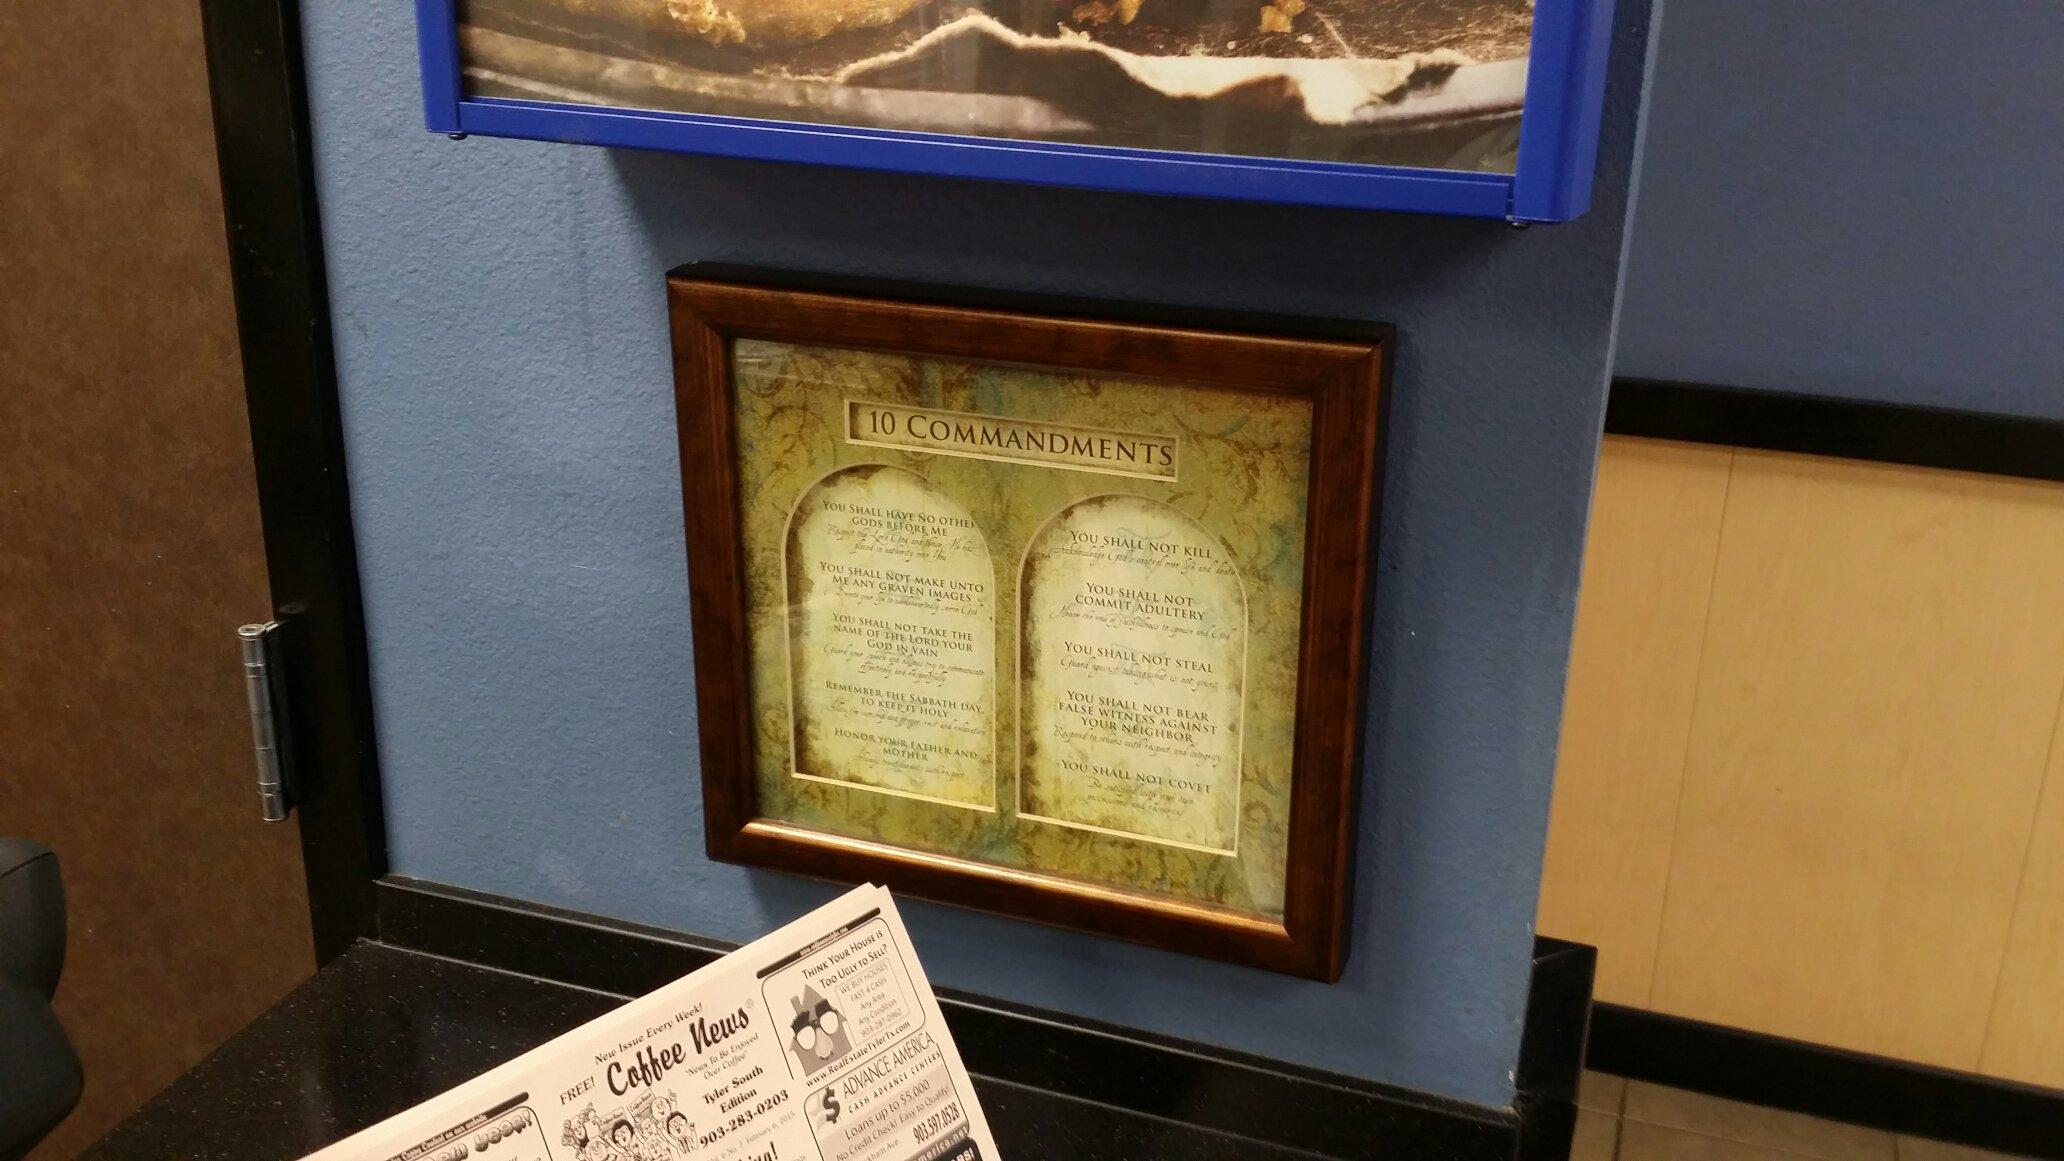 10 COMMANDMENTS
YOU SHALL HAVE NO OTHER
GODS BEFORE ME
Respect the Lord God and those He has
placed in authority over You
YOU SHALL NOT MAKE UNTO
ME ANY GRAVEN IMAGES
Devote your life to wholeheartedly serve God
YOU SHALL NOT TAKE THE
NAME OF THE LORD YOUR
GOD IN VAIN
Guard your speech and always try to communicate
effectively and respectfully
REMEMBER THE SABBATH DAY,
TO KEEP IT HOLY
Allow for worship and prayer, rest and relaxation
HONOR YOUR FATHER AND
MOTHER
Always treat parents with respect
YOU SHALL NOT KILL
Acknowledge God's control over life and death
YOU SHALL NOT
COMMIT ADULTERY
Honor the vow of faithfulness to spouse and God
YOU SHALL NOT STEAL
Guard against taking what is not yours
YOU SHALL NOT BEAR
FALSE WITNESS AGAINST
YOUR NEIGHBOR
Respond to others with respect and integrity
YOU SHALL NOT COVET
Be satisfied with your own
possessions and
New Issue Every Week!
FREE!
Coffee News®
"News To Be Enjoyed
Over Coffee"
Tyler South
Edition
903-283-0203
No. 7 February 6, 2015
THINK YOUR HOUSE IS
TOO UGLY TO SELL?
WE BUY HOUSES
FAST 4 CASH
Any Area
Any Condition
903-287-0962
www.RealEstateTylerTx.com
$ ADVANCE AMERICA
CASH ADVANCE CENTERS
Loans up to $5,000
No Credit Check! Easy to Qualify!
903.597.0528